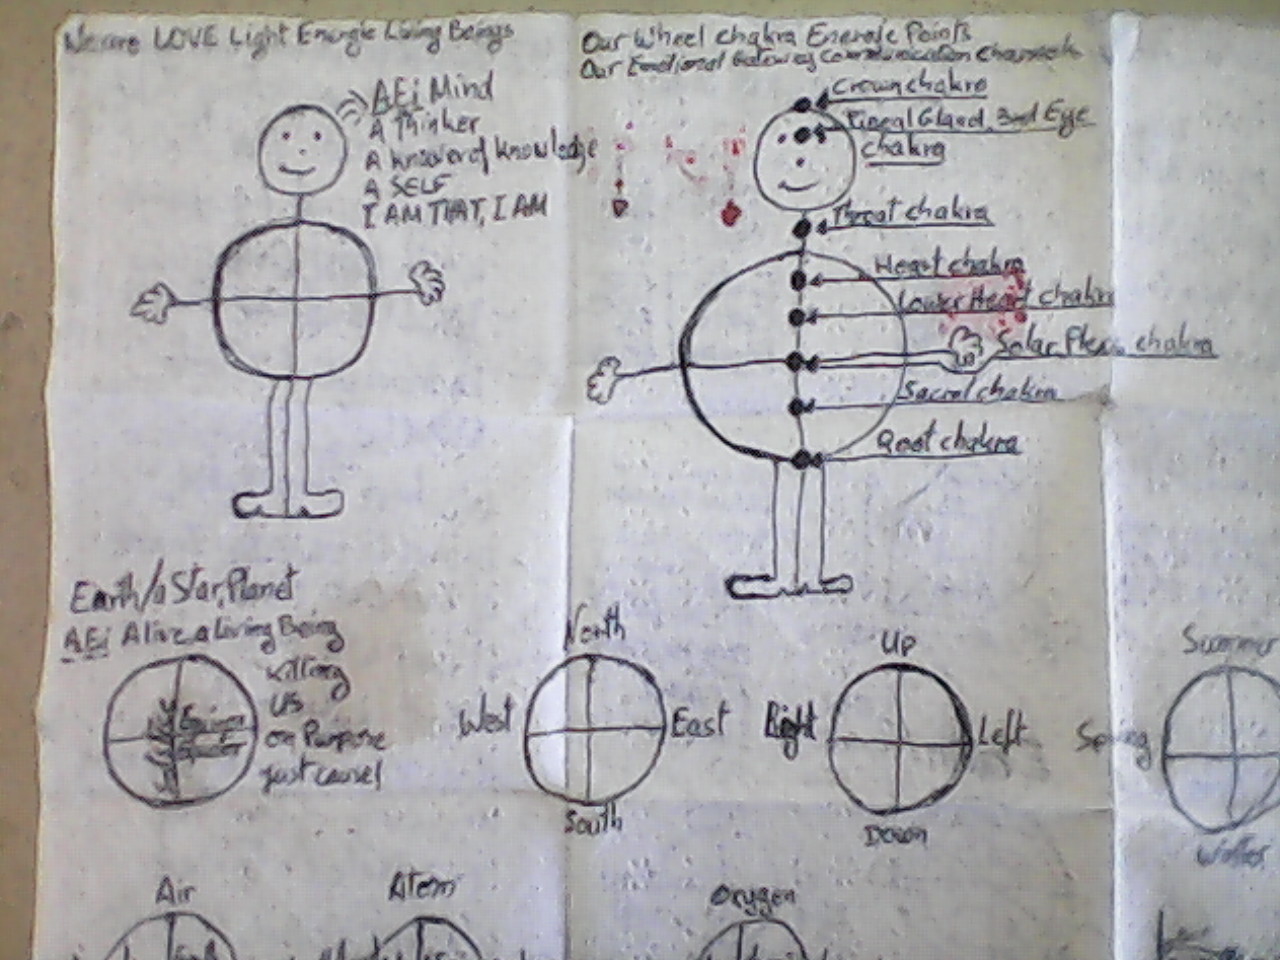 We are LOVE Light Energie Living Beings
AEi Mind
A Thinker
A knower of knowledge
A SELF
I AM THAT, I AM
Our Wheel chakra Energie Points
Our Emotional Gateway Communication Channels
Crown chakra
Pineal Gland, 3rd Eye
chakra
Throat chakra
Heart chakra
Lower Heart chakra
Solar Plexus chakra
Sacral chakra
Root chakra
Earth/a Star, Planet
AEi Alive a Living Being
Killing
US
on Purpose
just cause!
North
West
East
South
Up
Right
Left
Down
Summer
Spring
Winter
Air
Atom
Oxygen